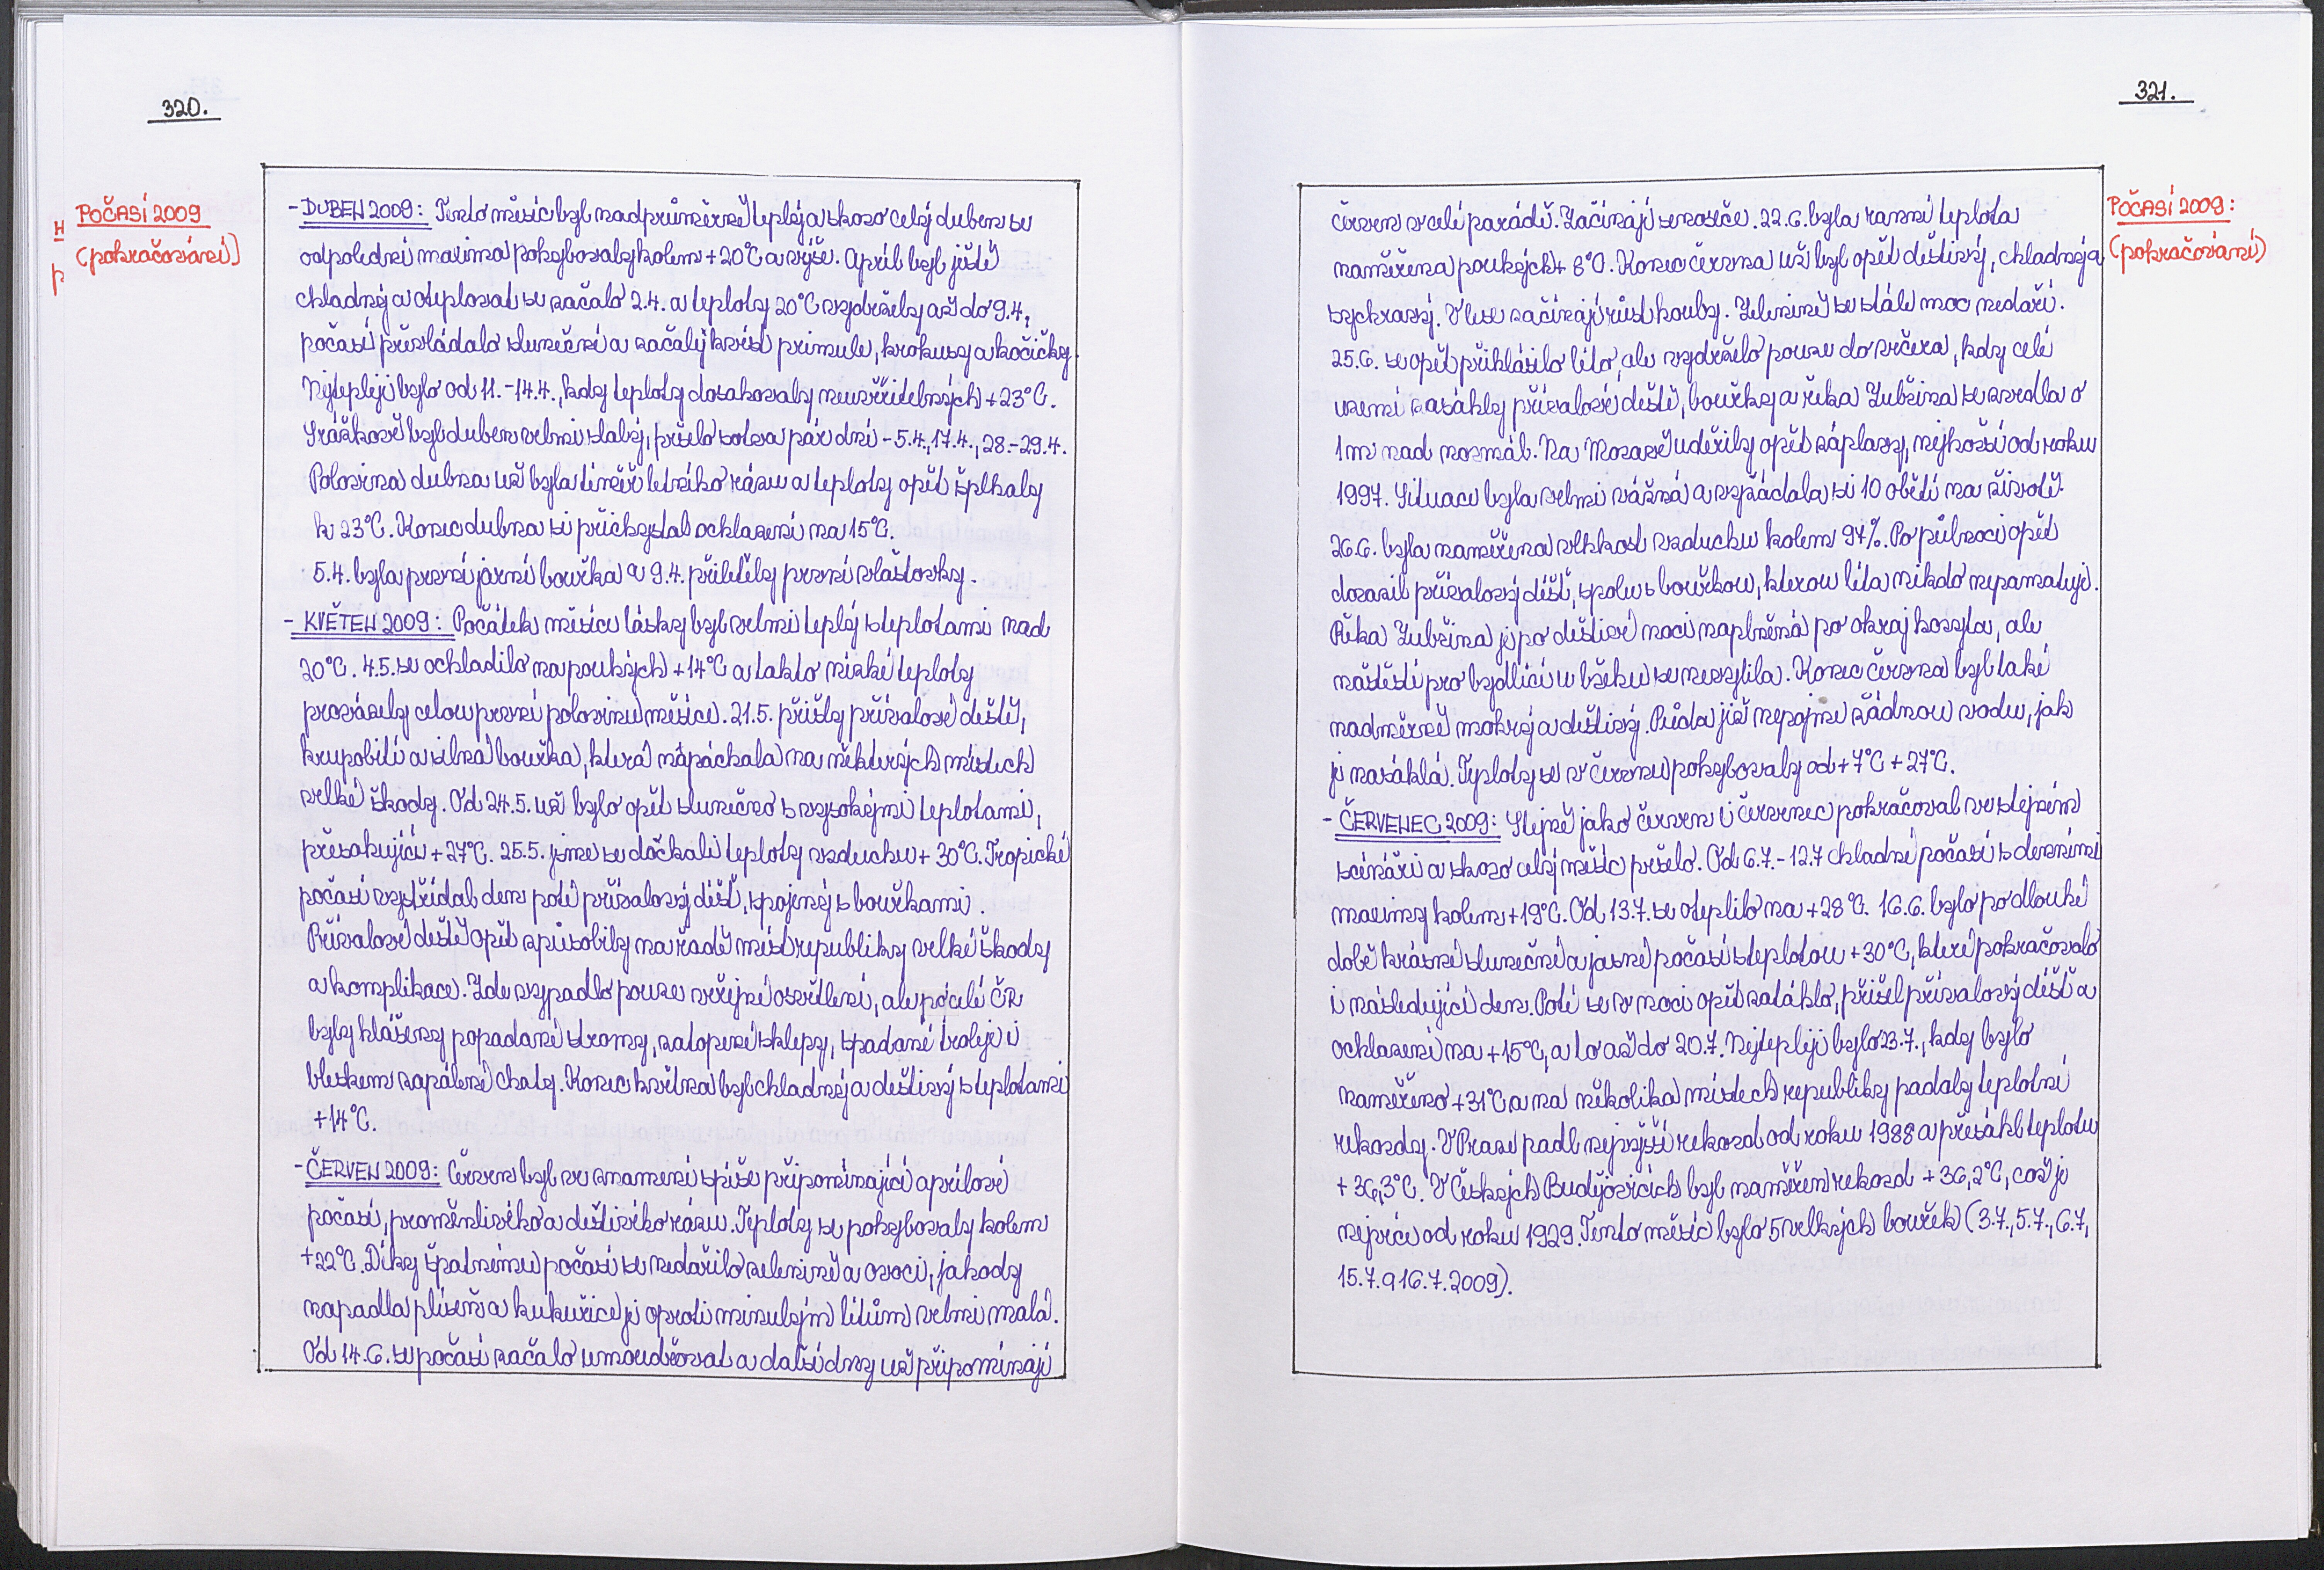 320.
POČASÍ 2009
(pokračování)
- DUBEN 2009: Tento měsíc byl nadprůměrně teplý a skoro celý duben se
odpolední maxima pohybovaly kolem +20°C a výše. Apríl byl ještě
chladný a oteplovat se začalo 2.4. a teploty 20°C vydržely až do 9.4.,
počasí převládalo slunečné a začaly kvést primule, krokusy a kočičky.
Nejtepleji bylo od 11.-14.4., kdy teploty dosahovaly neuvěřitelných +23°C.
Srážkově byl duben velmi slabý, pršelo sotva pár dní - 5.4., 17.4., 28.-29.4.
Polovina dubna už byla téměř letního rázu a teploty opět šplhaly
k 23°C. Konec dubna si přichystal ochlazení na 15°C.
5.4. byla první jarní bouřka a 9.4. přiletěly první vlaštovky.
- KVĚTEN 2009: Počátek měsíce lásky byl velmi teplý s teplotami nad
20°C. 4.5. se ochladilo na pouhých +14°C a takto nízké teploty
provázely celou první polovinu měsíce. 21.5. přišly přívalové deště,
krupobití a silná bouřka, která napáchala na některých místech
velké škody. Od 24.5. už bylo opět slunečno s vysokými teplotami,
přesahující +27°C. 25.5. jsme se dočkali teploty vzduchu +30°C. Tropické
počasí vystřídal den poté přívalový déšť, spojený s bouřkami.
Přívalové deště opět způsobily na řadě míst republiky velké škody
a komplikace. Zde vypadlo pouze veřejné osvětlení, ale po celé ČR
byly hlášeny popadané stromy, zatopené sklepy, spadané troleje i
bleskem zapálené chaty. Konec května byl chladný a deštivý s teplotami
+14°C.
- ČERVEN 2009: Červen byl ve znamení spíše připomínající aprílové
počasí, proměnlivého a deštivého rázu. Teploty se pohybovaly kolem
+22°C. Díky špatnému počasí se nedařilo zelenině a ovoci, jahody
napadla plíseň a kukuřice je oproti minulým létům velmi malá.
Od 14.6. se počasí začalo umoudřovat a další dny už připomínají
321.
POČASÍ 2009:
(pokračování)
červen v celé parádě. Začínají se roseče. 22.6. byla ranní teplota
naměřena pouhých + 8°C. Konec června už byl opět deštivý, chladný a
sychravý. V lese začínají růst houby. Zelenině se stále moc nedaří.
25.6. se opět přihlásilo léto, ale vydrželo pouze do večera, kdy celé
území zasáhly přívalové deště, bouřky a řeka Lubřina se zvedla o
1m nad normál. Na Moravě udeřily opět záplavy, nejhorší od roku
1997. Situace byla velmi vážná a vyžádala si 10 obětí na životě.
26.6. byla naměřena vlhkost vzduchu kolem 94%. Po půlnoci opět
dorazil přívalový déšť, spolu s bouřkou, kterou léta nikdo nepamatuje.
Řeka Lubřina je po deštivé noci naplněná po okraj koryta, ale
naštěstí pro bydlící u břehu se nevylila. Konec června byl také
nadměrně mokrý a deštivý. Půda již nepojme žádnou vodu, jak
je nasáklá. Teploty se v červnu pohybovaly od +7°C +27°C.
- ČERVENEC 2009: Stejně jako červen i červenec pokračoval ve stejném
scénáři a skoro celý měsíc pršelo. Od 6.7.-12.7 chladné počasí s denními
maximy kolem +19°C. Od 13.7. se oteplilo na +28°C. 16.6. bylo po dlouhé
době krásné slunečné a jasné počasí s teplotou +30°C, které pokračovalo
i následující den. Poté se v noci opět zatáhlo, přišel přívalový déšť a
ochlazení na +15°C, a to až do 20.7. Nejtepleji bylo 23.7., kdy bylo
naměřeno +31°C a na několika místech republiky padaly teplotní
rekordy. V Praze padl nejvyšší rekord od roku 1988 a přesáhl teplotu
+ 36,3°C. V Českých Budějovicích byl naměřen rekord + 36,2°C, což je
nejvíce od roku 1929. Tento měsíc bylo 5 velkých bouřek (3.7., 5.7., 6.7,
15.7. a 16.7. 2009).